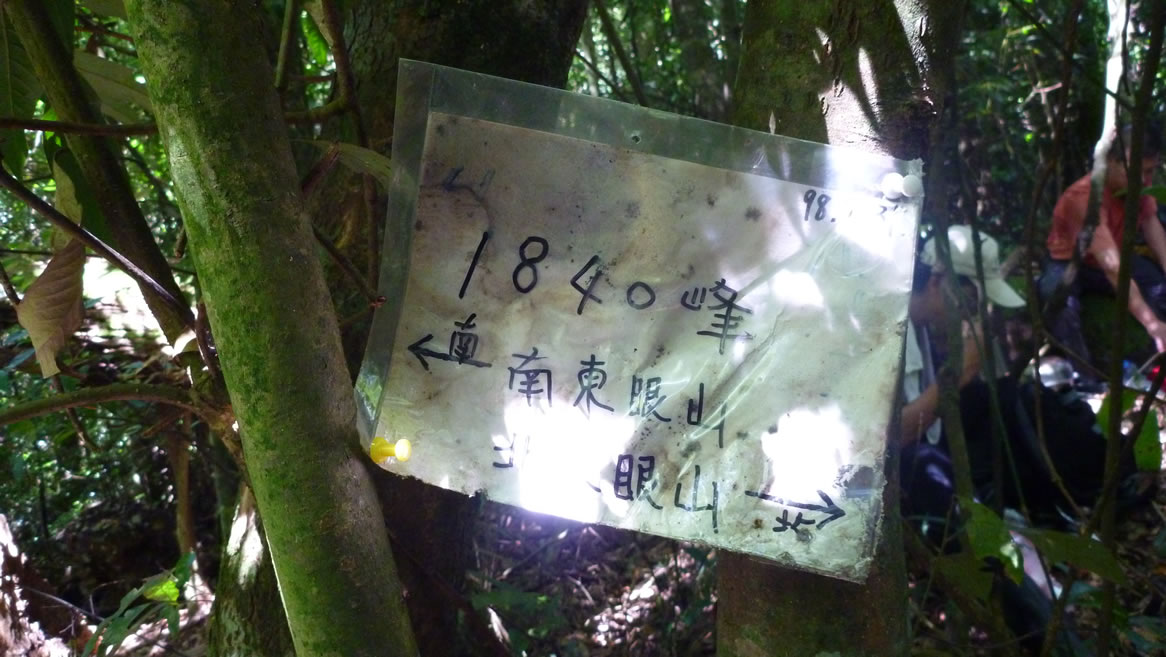 98.
1840峰
←南
南東眼山
北 眼山
北→